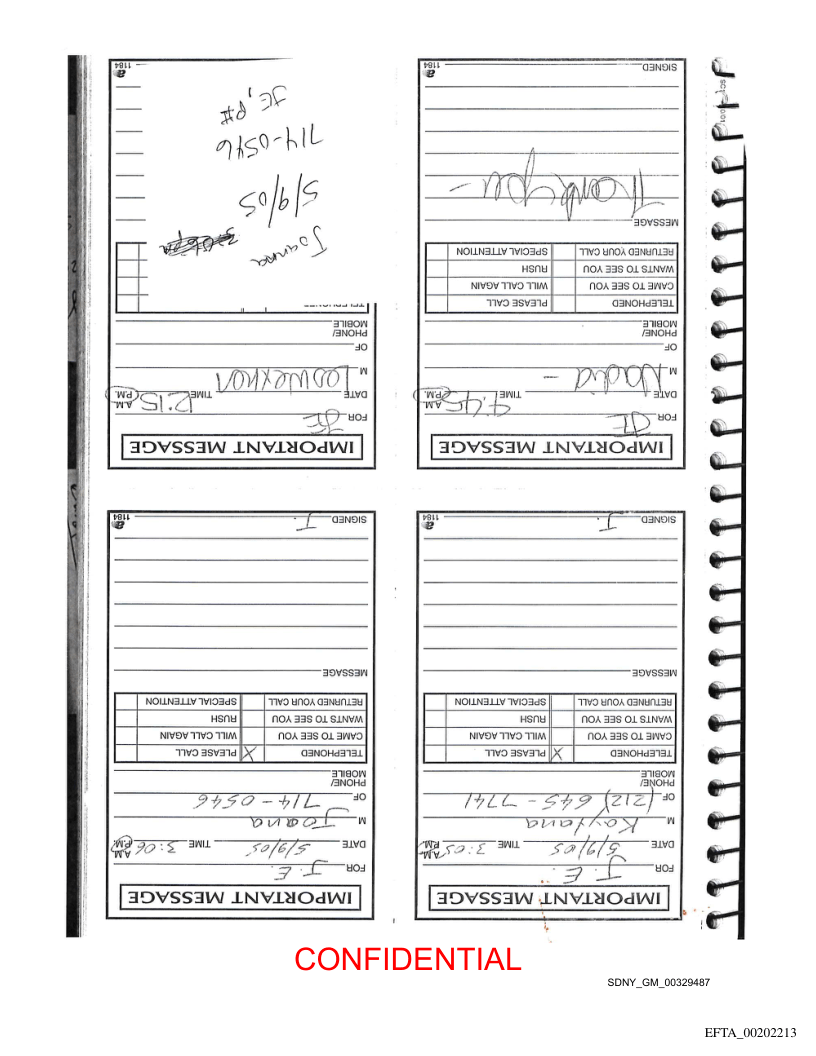 IMPORTANT MESSAGE
FOR J.E.
DATE 5/9/05 TIME 3:05 A.M. P.M.
M
OF (212) 645-7741
PHONE/
MOBILE
TELEPHONED X PLEASE CALL
CAME TO SEE YOU WILL CALL AGAIN
WANTS TO SEE YOU RUSH
RETURNED YOUR CALL SPECIAL ATTENTION
MESSAGE
SIGNED J.
1184
IMPORTANT MESSAGE
FOR J.E.
DATE 5/9/05 TIME 3:06 A.M. P.M.
M Joana
OF 714-0546
PHONE/
MOBILE
TELEPHONED X PLEASE CALL
CAME TO SEE YOU WILL CALL AGAIN
WANTS TO SEE YOU RUSH
RETURNED YOUR CALL SPECIAL ATTENTION
MESSAGE
SIGNED J.
1184
IMPORTANT MESSAGE
FOR JE
DATE TIME 4:45 A.M. P.M.
M Nadia -
OF
PHONE/
MOBILE
TELEPHONED PLEASE CALL
CAME TO SEE YOU WILL CALL AGAIN
WANTS TO SEE YOU RUSH
RETURNED YOUR CALL SPECIAL ATTENTION
MESSAGE
Thank you -
SIGNED
1184
IMPORTANT MESSAGE
FOR JE
DATE TIME 12:15 A.M. P.M.
M Les Wexner
OF
PHONE/
MOBILE
TELEPHONED
Joanna
5/9/05
714-0546
JE, P#
1184
CONFIDENTIAL
SDNY_GM_00329487
EFTA_00202213